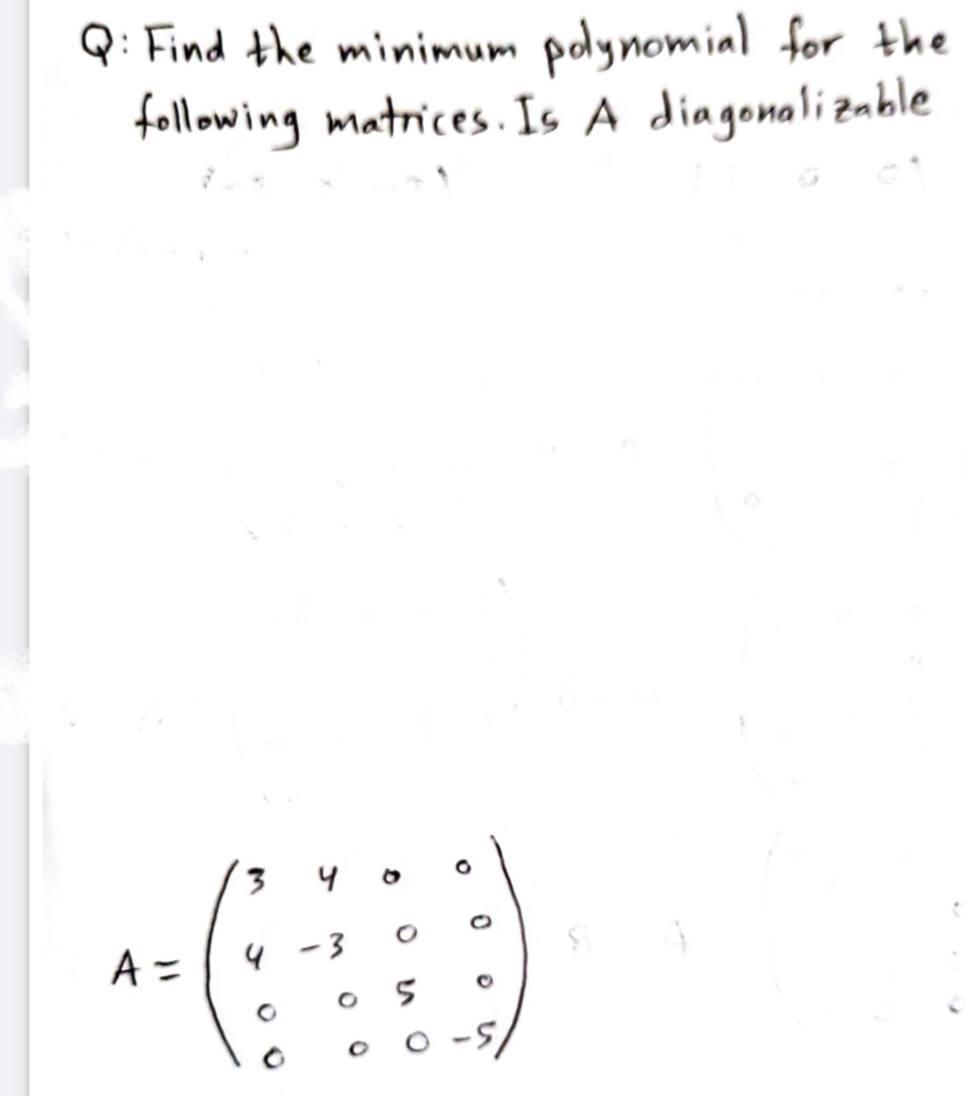 Q: Find the minimum polynomial for the
following matrices. Is A diagonalizable
3 4 0 0
4 -3 0 0
A =
0 0 5 0
0 0 0 -5